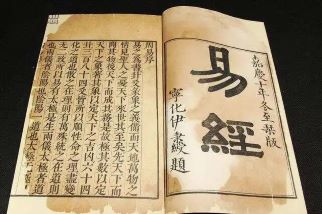 嘉慶十年冬至栞版
易經
寧化伊秉綬題
周易序
易之為書卦爻彖象之義備而天地萬物之
情見聖人之憂天下來世其至矣先天下
而開其物後天下而成其務是故極其數以定
天下之象著其象以定天下之吉凶六十四
卦三百八十四爻皆所以順性命之理盡變
化之道也散之在理則有萬殊統之在道則
無二致所以易有太極是生兩儀太極者道
也兩儀者陰陽也陰陽一道也太極無